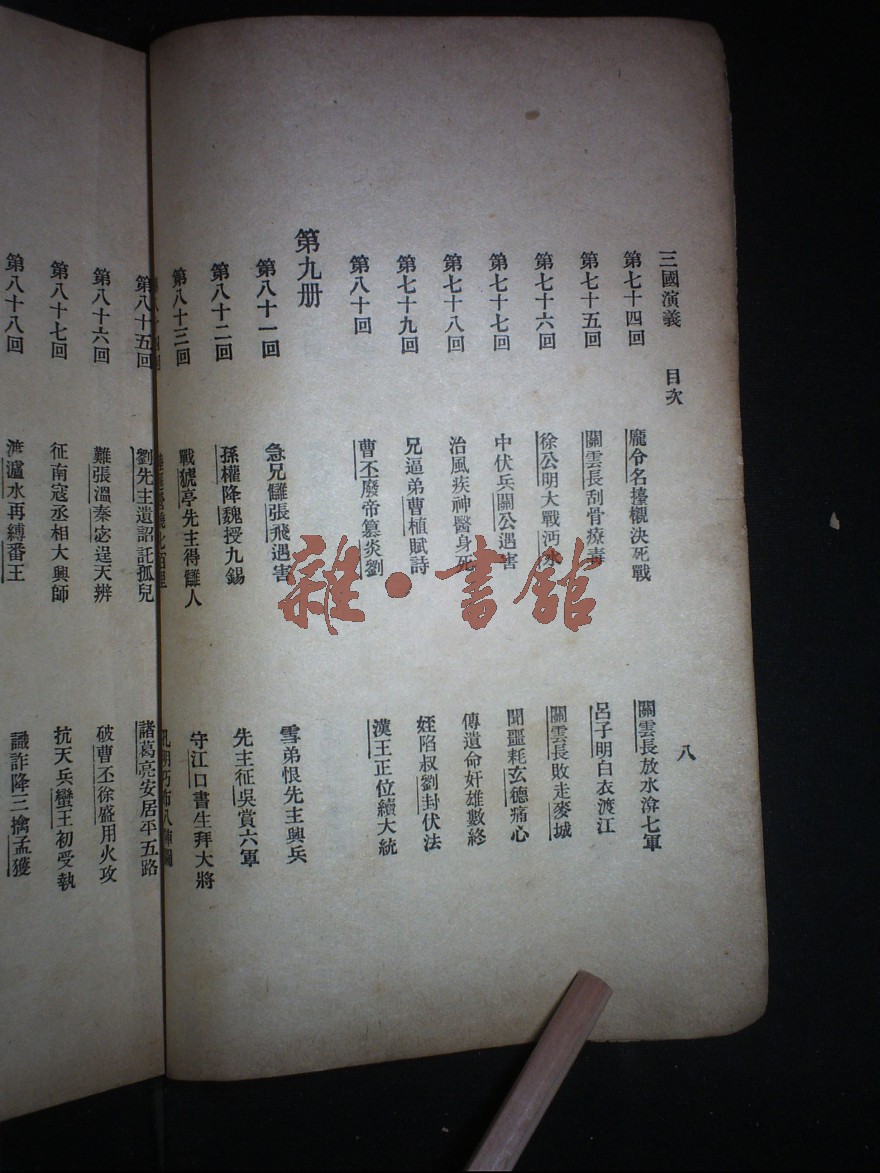 三國演義 目次 八
第七十四回 龐令名擡櫬決死戰 關雲長放水渰七軍
第七十五回 關雲長刮骨療毒 呂子明白衣渡江
第七十六回 徐公明大戰沔水 關雲長敗走麥城
第七十七回 中伏兵關公遇害 聞噩耗玄德痛心
第七十八回 治風疾神醫身死 傳遺命奸雄數終
第七十九回 兄逼弟曹植賦詩 姪陷叔劉封伏法
第八十回 曹丕廢帝篡炎劉 漢王正位續大統
第九册
第八十一回 急兄讎張飛遇害 雪弟恨先主興兵
第八十二回 孫權降魏授九錫 先主征吳賞六軍
第八十三回 戰猇亭先主得讎人 守江口書生拜大將
孔明巧布八陣圖
第八十五回 劉先主遺詔託孤兒 諸葛亮安居平五路
第八十六回 難張溫秦宓逞天辨 破曹丕徐盛用火攻
第八十七回 征南寇丞相大興師 抗天兵蠻王初受執
第八十八回 渡瀘水再縛番王 識詐降三擒孟獲
雜·書館